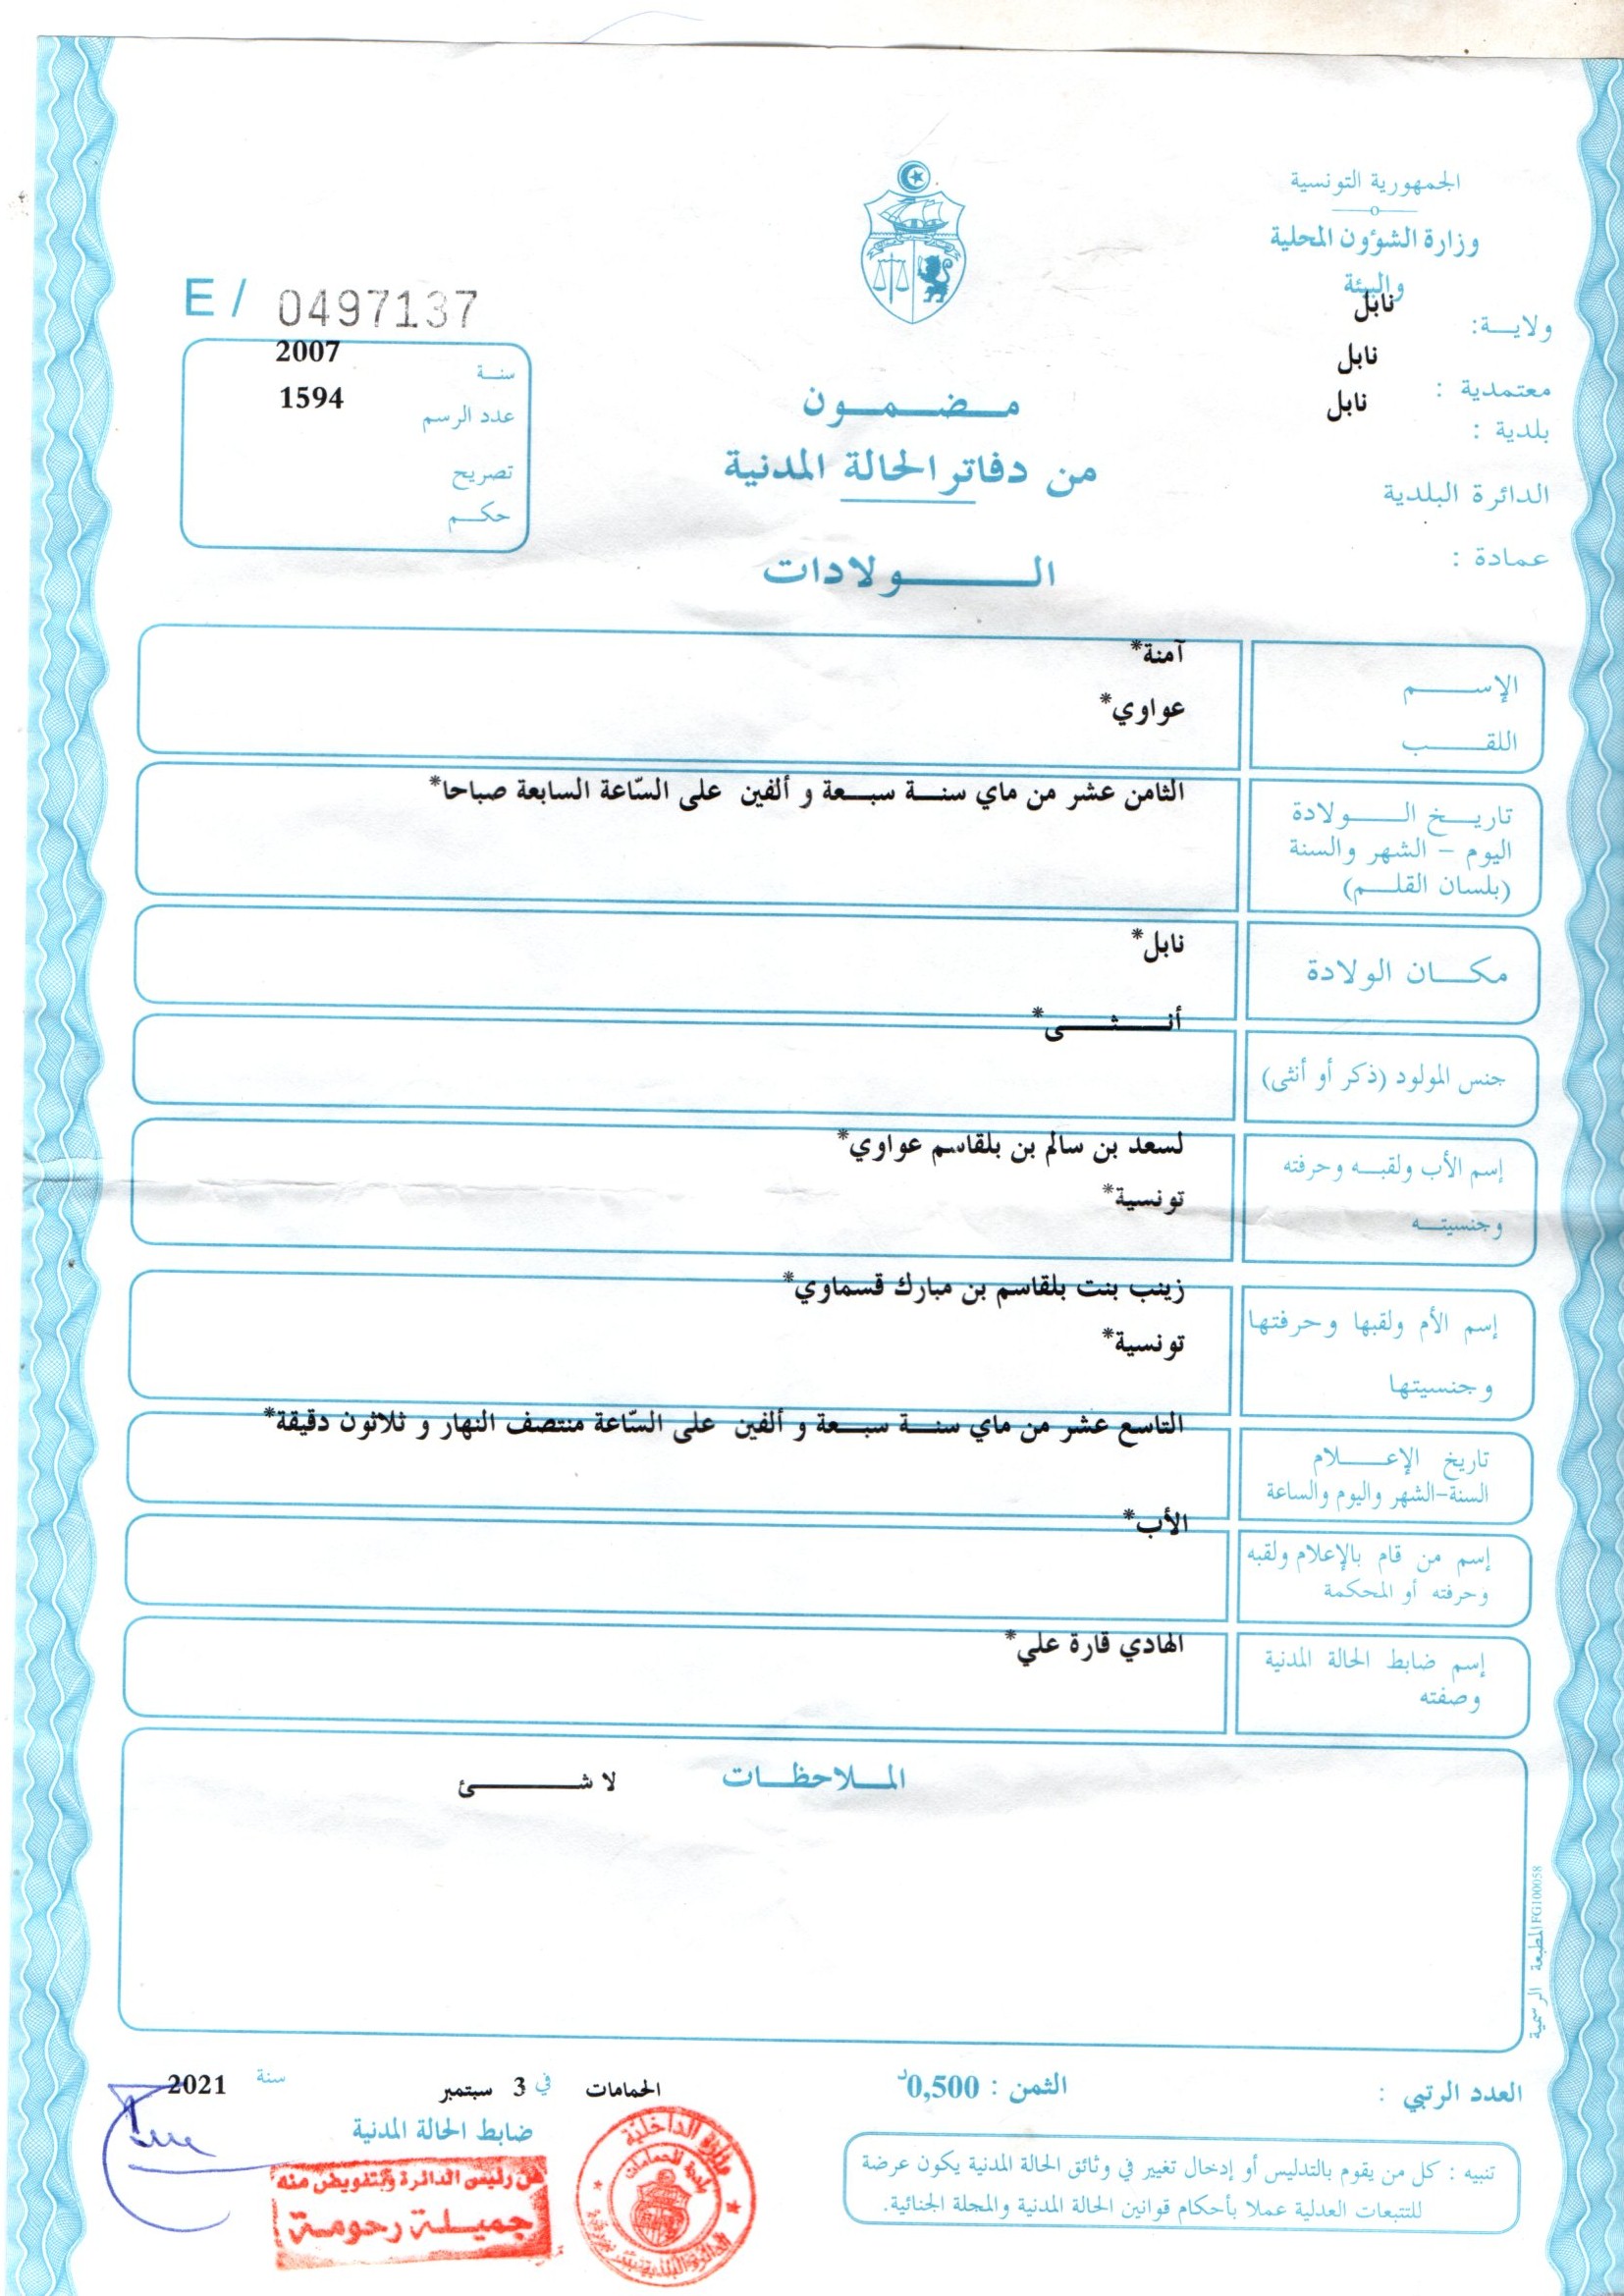 الجمهورية التونسية
وزارة الشؤون المحلية
والبيئة
ولايـــة: نابل
معتمدية : نابل
بلدية : نابل
الدائرة البلدية
عمادة :
E / 0497137
سنــة 2007
عدد الرسم 1594
تصريح
حكــم
مــضــمــون
من دفاتر الحالة المدنية
الـــولادات
الإســـــم آمنة*
اللقـــــب عواوي*
تاريــخ الـــولادة
اليوم – الشهر والسنة
(بلسان القلــم)
الثامن عشر من ماي سنــة سبــعة و ألفين على السّاعة السابعة صباحا*
مكــان الولادة نابل*
جنس المولود (ذكر أو أنثى) أنــــثــــى*
إسم الأب ولقبــه وحرفته لسعد بن سالم بن بلقاسم عواوي*
وجنسيتــه تونسية*
إسم الأم ولقبها وحرفتها زينب بنت بلقاسم بن مبارك قسماوي*
وجنسيتها تونسية*
تاريخ الإعـــلام
السنة-الشهر واليوم والساعة
التاسع عشر من ماي سنــة سبــعة و ألفين على السّاعة منتصف النهار و ثلاثون دقيقة*
إسم من قام بالإعلام ولقبه
وحرفته أو المحكمة
الأب*
إسم ضابط الحالة المدنية
وصفته
الهادي قارة علي*
المــلاحظــات لا شـــــــئ
المطبعة الرسمية FG100058
العدد الرتبي :
الثمن : 0,500د
الحمامات في 3 سبتمبر سنة 2021
ضابط الحالة المدنية
عن رئيس الدائرة وبتفويض منه
جميلة رحومة
وزارة الداخلية
بلدية الحمامات
تنبيه : كل من يقوم بالتدليس أو إدخال تغيير في وثائق الحالة المدنية يكون عرضة
للتتبعات العدلية عملا بأحكام قوانين الحالة المدنية والمجلة الجنائية.